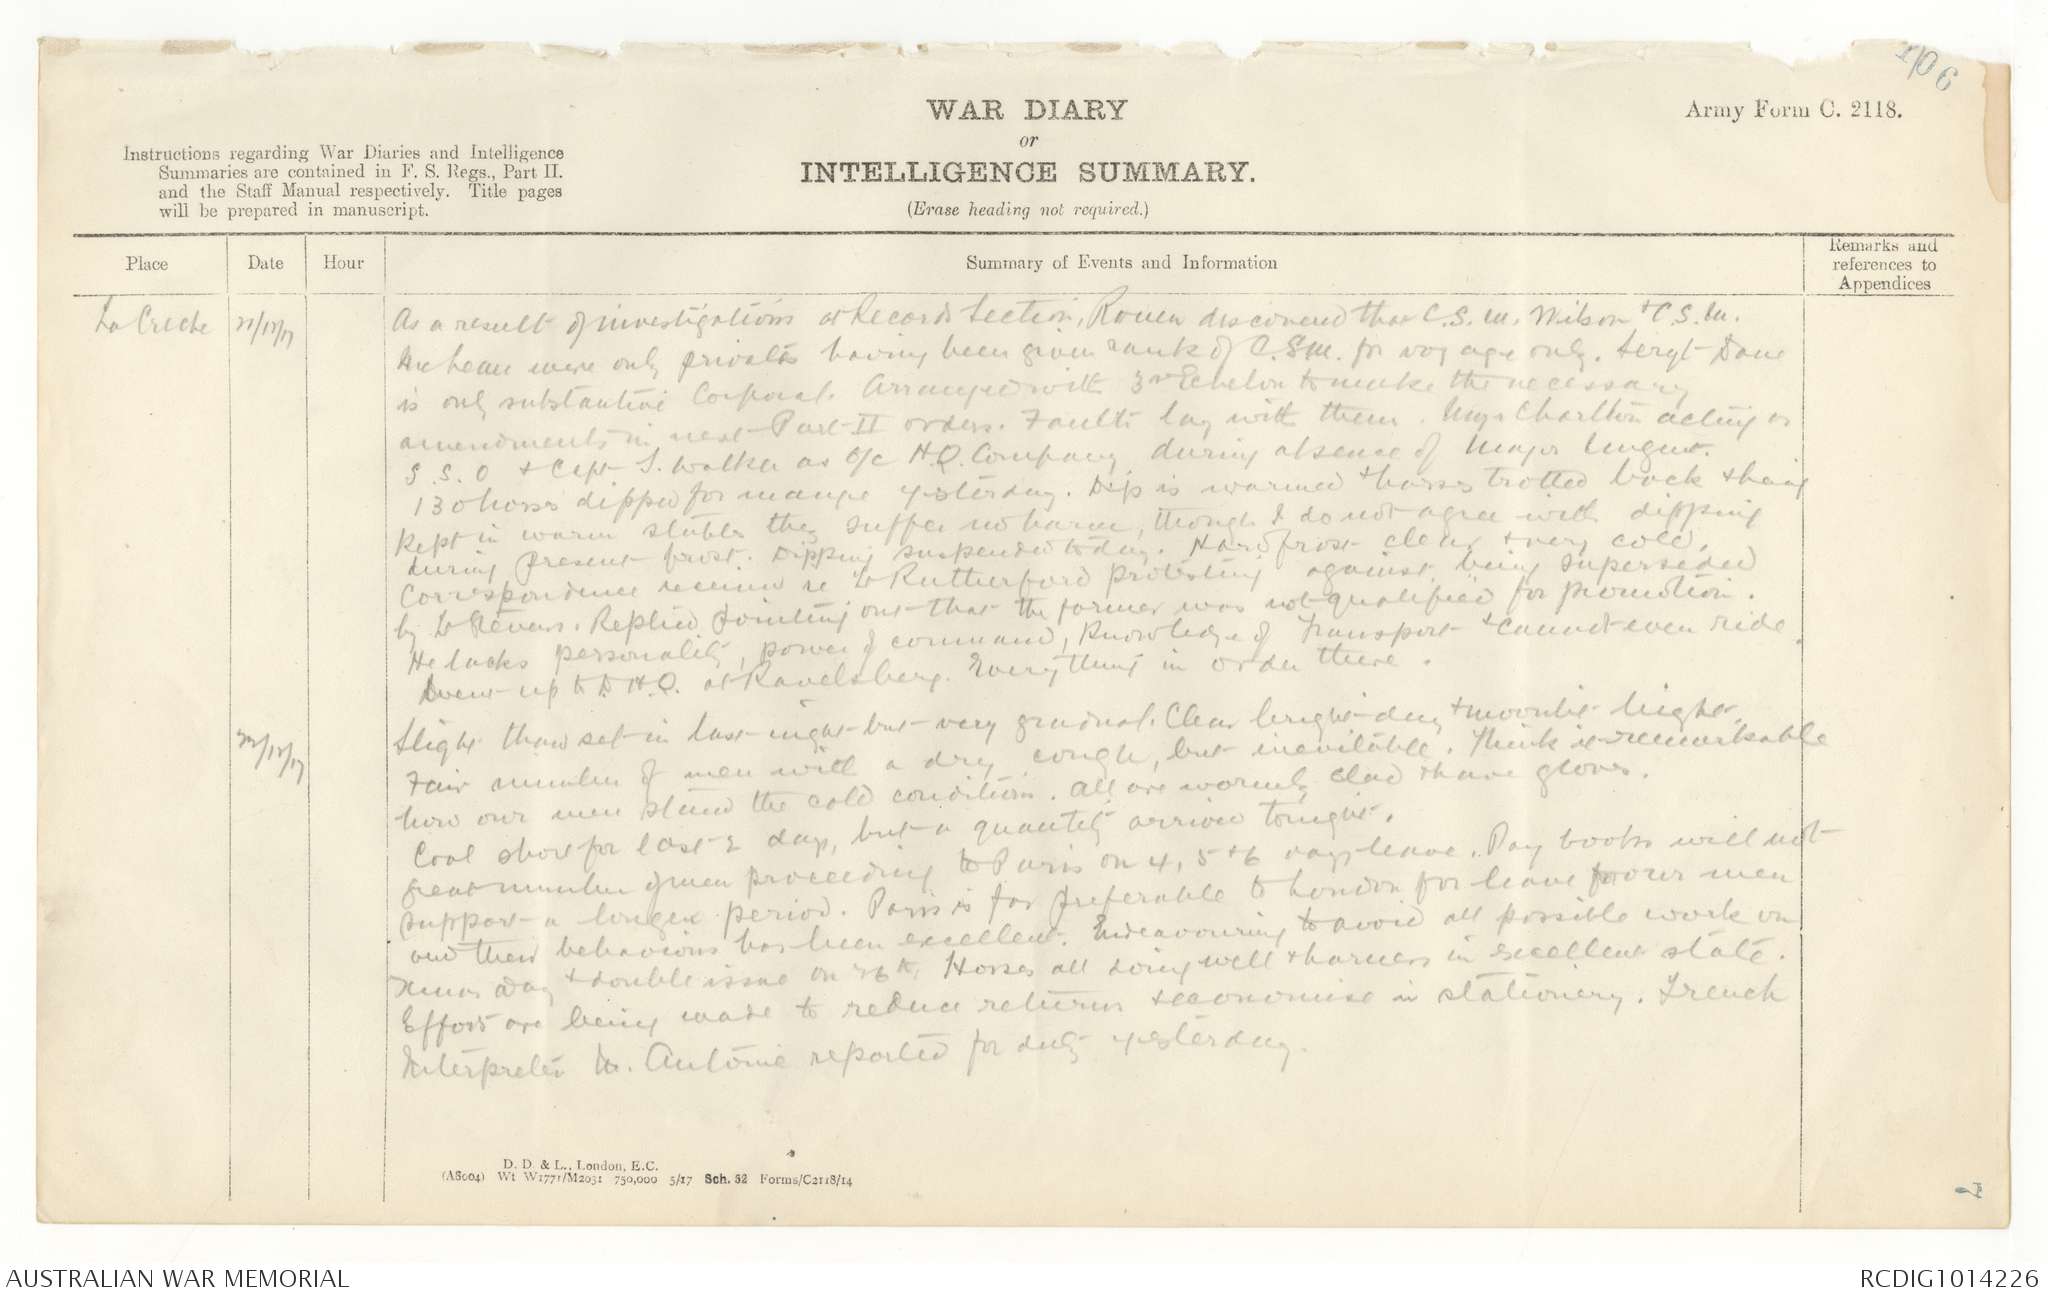 106
WAR DIARY
or
INTELLIGENCE SUMMARY.
(Erase heading not required.)
Army Form C. 2118.
Instructions regarding War Diaries and Intelligence
Summaries are contained in F. S. Regs., Part II.
and the Staff Manual respectively. Title pages
will be prepared in manuscript.
Place
Date
Hour
Summary of Events and Information
Remarks and
references to
Appendices
La Creche
21/12/17
As a result of investigations at Records Section, Rouen discovered that C.S.M. Wilson + C.S.M.
were only privates having been given rank of C.S.M. for voyage only. Sergt
is only substantive Corporal. Arranged with 3rd Echelon to make the necessary
amendments in next Part II orders. Faults lay with them. Major Charlton acting as
S.S.O + Capt J. Walker as O/c H.Q. Company during absence of Major
130 horses dipped for mange yesterday. Dip is warmed + horses trotted back + being
kept in warm stables they suffer no harm, though I do not agree with dipping
during present frost. Dipping suspended today. Hard frost clear + very cold.
Correspondence received re Lt Rutherford protesting against being superseded
by Lt Revans. Replied pointing out that the former was not qualified for promotion.
He lacks personality, power of command, knowledge of Transport + cannot even ride.
Went up to D.H.Q. at Ravelsberg. Everything in order there.
22/12/17
Slight thaw set in last night but very gradual. Clear bright day + moonlit night.
Fair number of men with a dry cough, but inevitable. Think it remarkable
how our men stand the cold conditions. All are warmly clad + have gloves.
Coal short for last 2 days, but a quantity arrived tonight.
Great number of men proceeding to Paris on 4, 5 + 6 days leave. Pay books will not
support a longer period. Paris is far preferable to London for leave for our men
and their behaviour has been excellent. Endeavouring to avoid all possible work on
Xmas Day + double issue on 26th. Horses all doing well + harness in excellent state.
Efforts are being made to reduce returns + economise in stationery. French
Interpreter M. Antoine reported for duty yesterday.
D. D. & L., London, E.C.
(A8004) Wt W1771/M2031 750,000 5/17 Sch. 52 Forms/C2118/14
AUSTRALIAN WAR MEMORIAL
RCDIG1014226